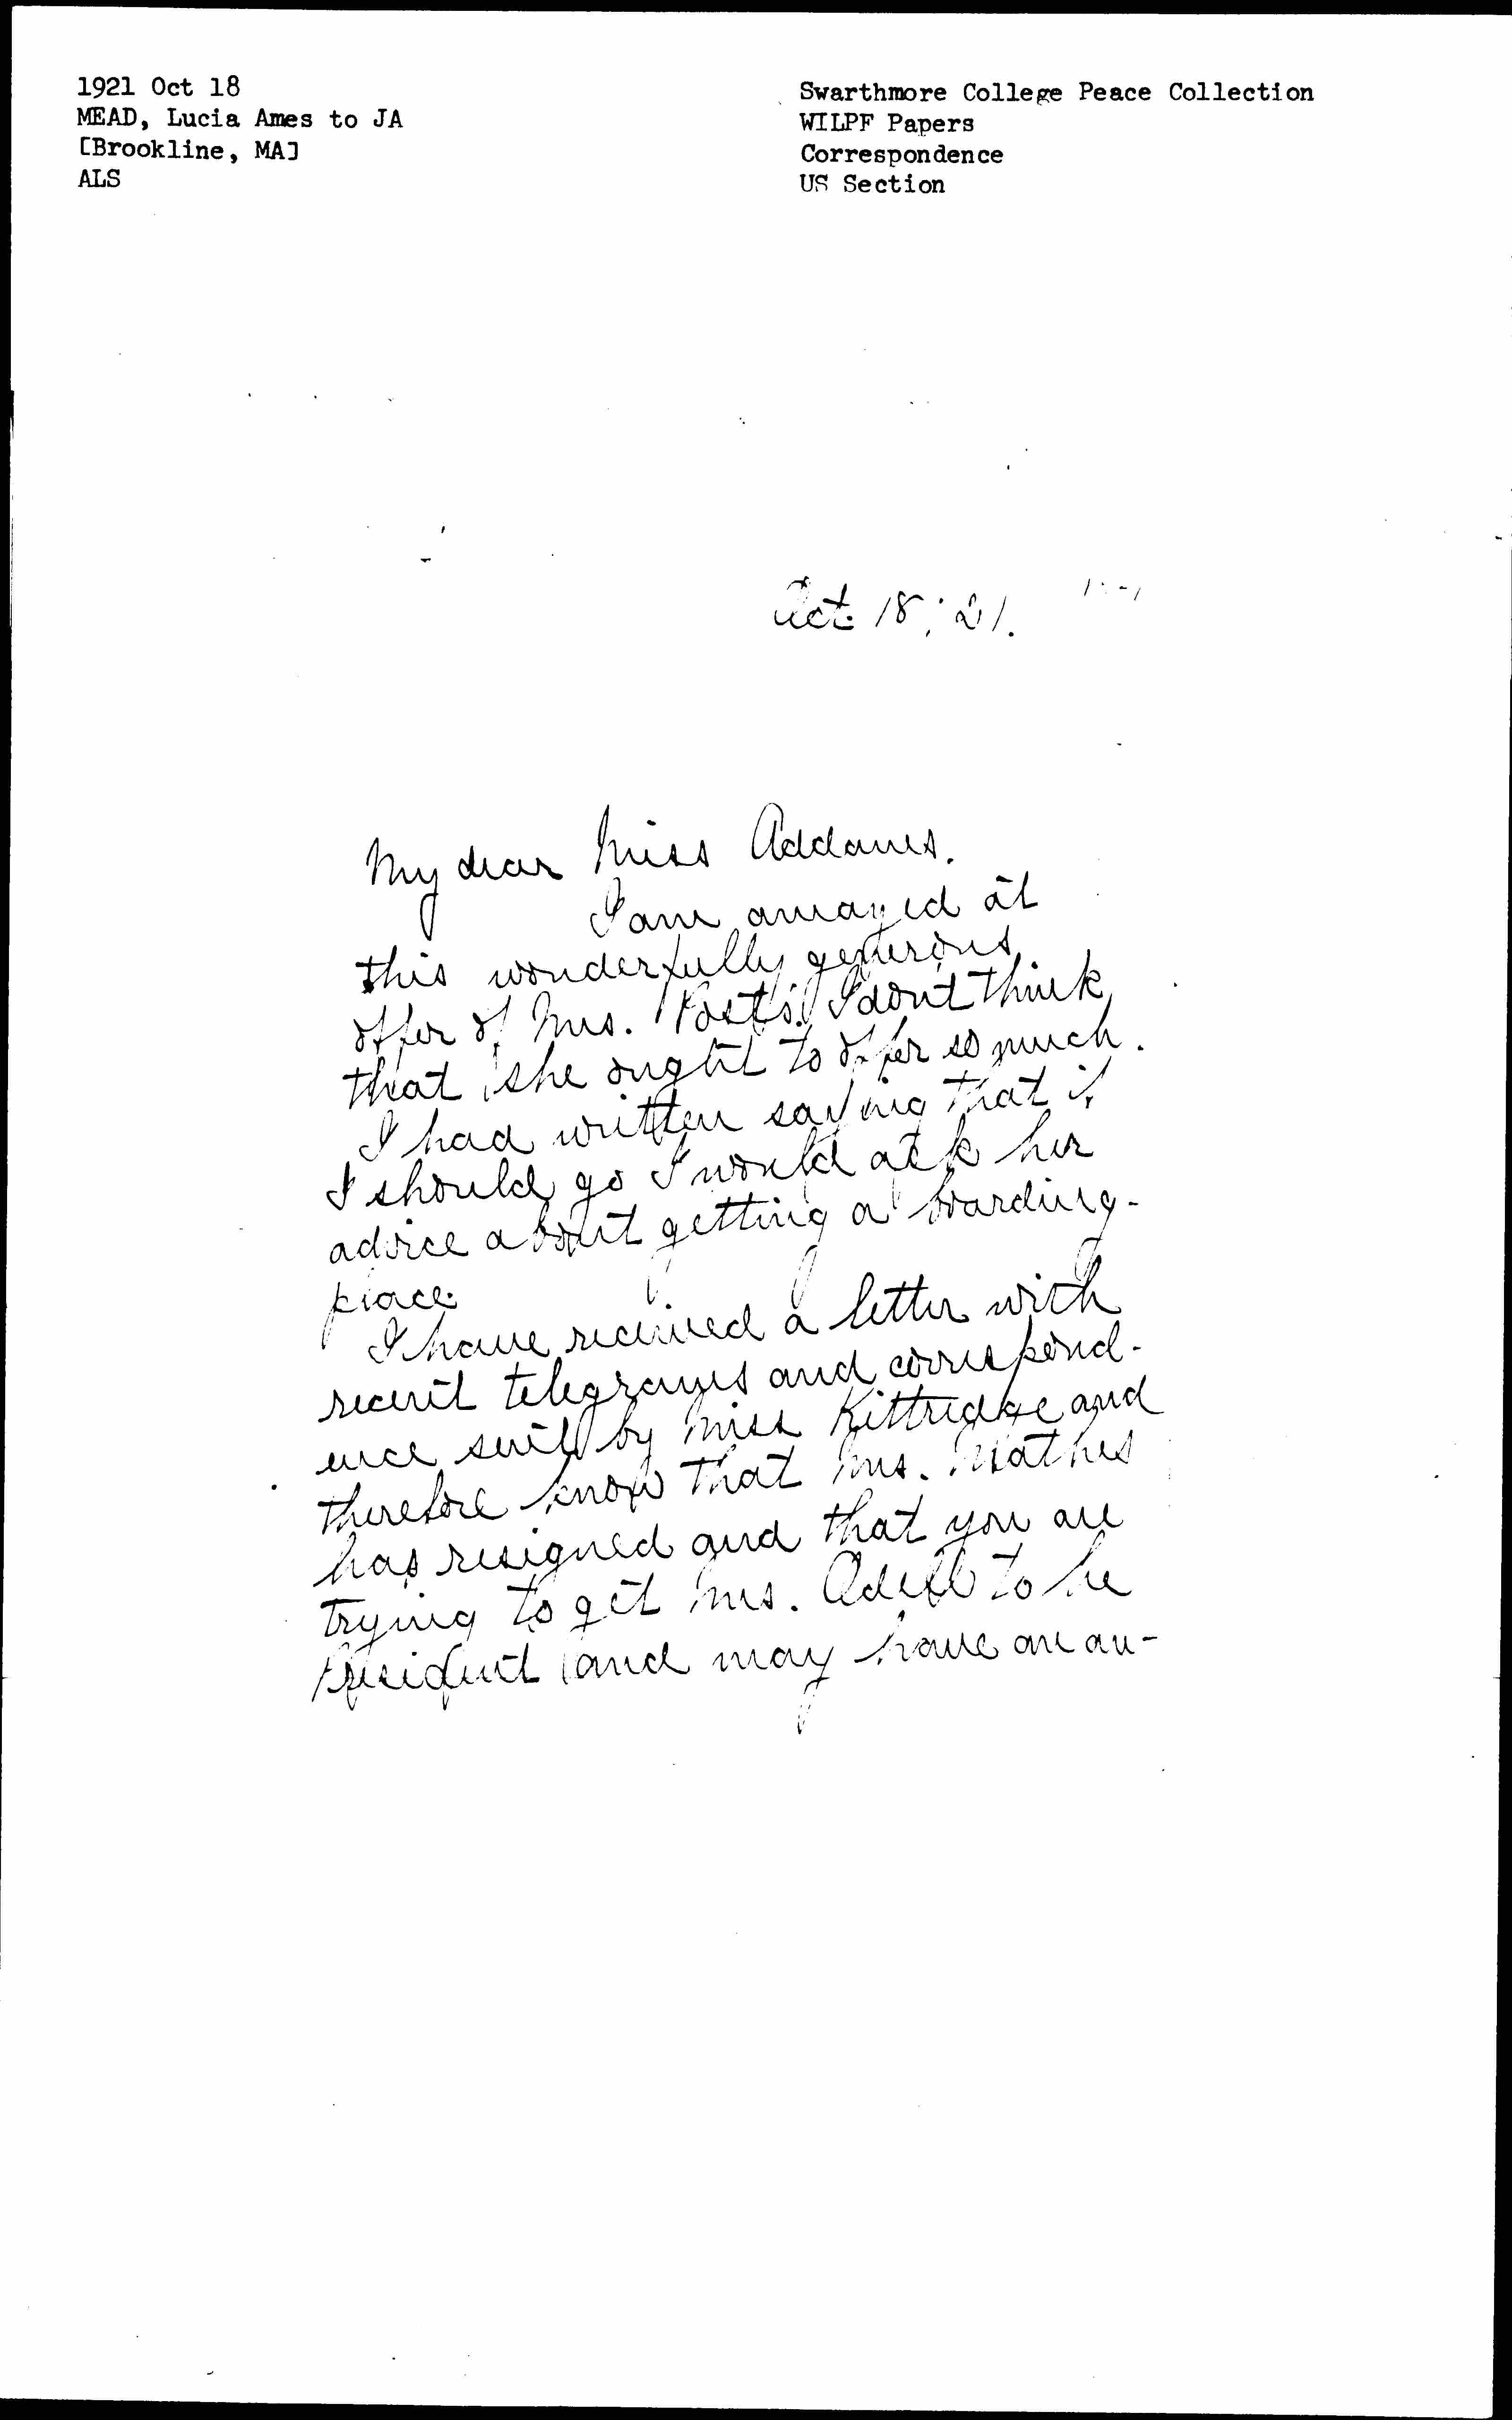 1921 Oct 18
MEAD, Lucia Ames to JA
[Brookline, MA]
ALS
Swarthmore College Peace Collection
WILPF Papers
Correspondence
US Section
Oct. 18, '21.
My dear Miss Addams.
I am amazed at
this wonderfully generous
offer of Mrs. Post's. I don't think
that she ought to offer so much.
I had written saying that if
I should go I would ask her
advice about getting a boarding-
place.
I have received a letter with
recent telegrams and correspond-
ence sent by Miss Kittredge and
therefore know that Mrs. Mathes
has resigned and that you are
trying to get Mrs. Odell to be
president and may have an an-